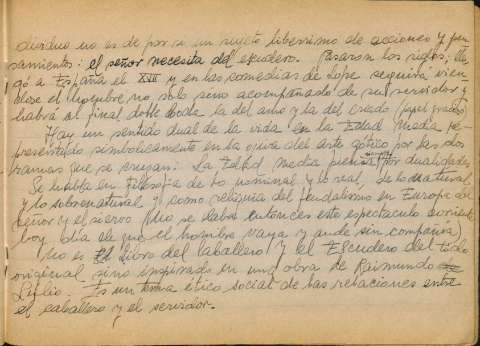 dividuo no es de por sí un sujeto libérrimo de acciones y pen
samientos: el señor necesita del escudero. Pasaron los siglos, lle
gó a España el XVII y en las comedias de Lope seguirá vien
dose el hombre no solo sino acompañado de su servidor y
habrá al final doble boda la del amo y la del criado (papel gracioso)
Hay un sentido dual de la vida en la Edad Media re-
presentado simbolicamente en la ojiva del arte gótico por las dos
ramas que se cruzan: La Edad Media piensa por dualidades
Se habla en Filosofía de lo nominal y lo real, de lo natural
y lo sobrenatural y como reliquia del feudalismo en Europa del
señor y el siervo (No se daba entonces este espectaculo corriente
hoy día de que el hombre vaya y ande sin compañía)
No es El libro del Caballero y el Escudero del todo
original sino inspirado en una obra de Raimundo
Lulio. Es un tema ético social de las relaciones entre
el caballero y el servidor.